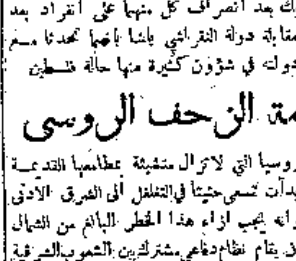 ك بعد انصراف كل منهما على انفراد بعد
مقابلة دولة النقراشي باشا بأنهما تحدثا مع
دولته في شؤون كثيرة منها حالة فلسطين
مة الزحف الروسى
روسيا التي لا تزال متشبثة بمطامعها القديمة
بدأت تسعى حثيثا في التغلغل الى الشرق الادنى
وانه يجب ازاء هذا الخطر البالغ من الشمال
ن يقام نظام دفاعي مشترك بين الشعوب الشرقية